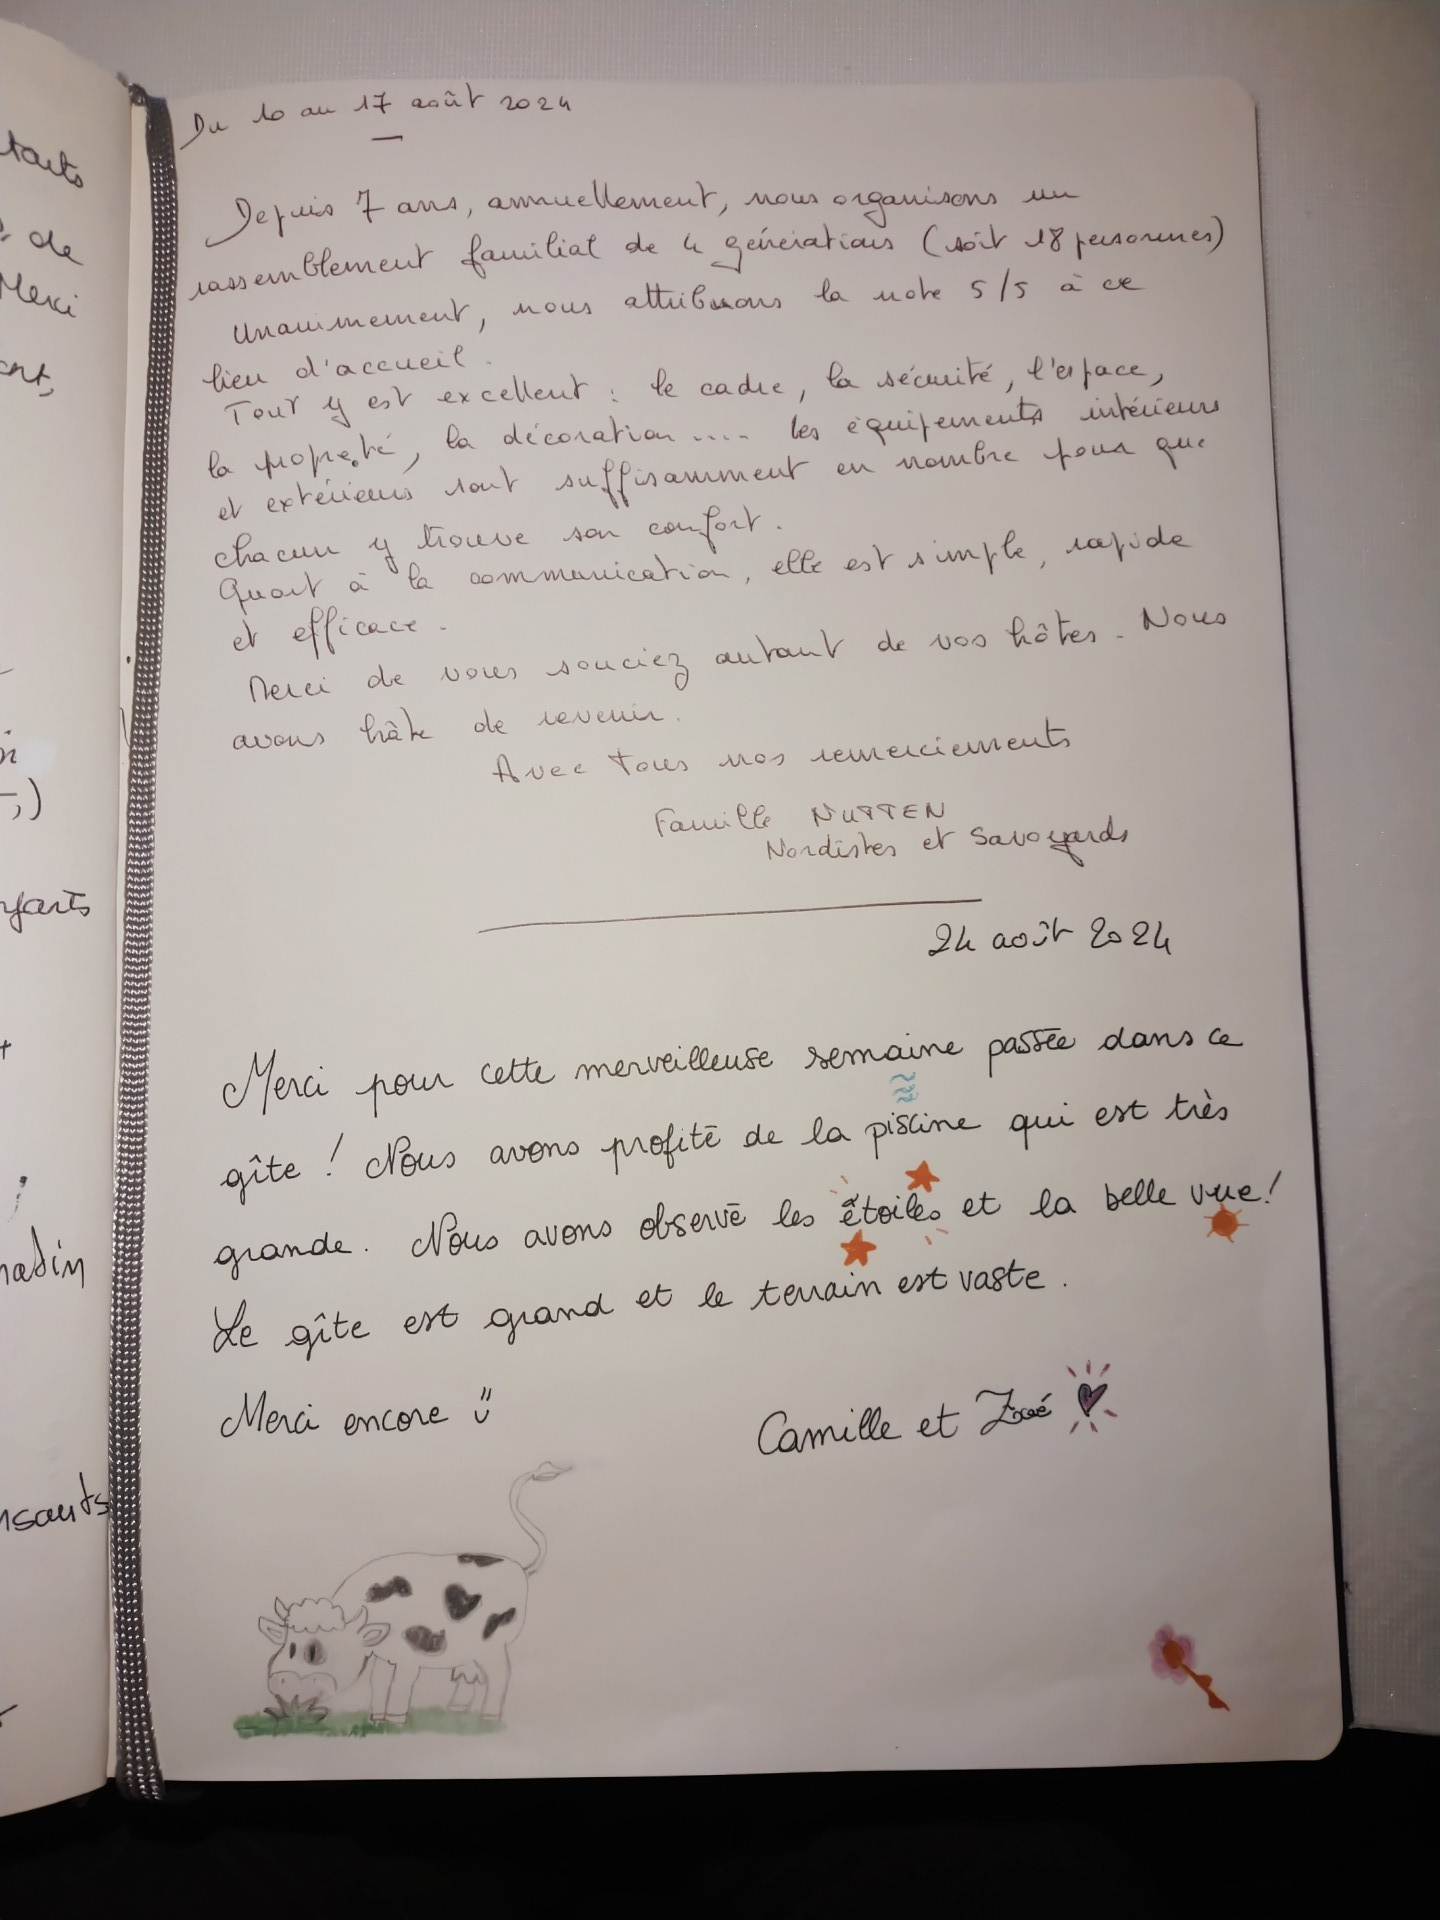 Du 10 au 17 août 2024
Depuis 7 ans, annuellement, nous organisons un
rassemblement familial de 4 générations (soit 18 personnes)
Unanimement, nous attribuons la note 5/5 à ce
lieu d'accueil.
Tout y est excellent : le cadre, la sécurité, l'espace,
la propreté, la décoration.... les équipements intérieurs
et extérieurs sont suffisamment en nombre pour que
chacun y trouve son confort.
Quant à la communication, elle est simple, rapide
et efficace.
Merci de vous souciez autant de vos hôtes. Nous
avons hâte de revenir.
Avec tous nos remerciements
Famille NUTTEN
Nordistes et Savoyards
24 août 2024
Merci pour cette merveilleuse semaine passée dans ce
gîte ! Nous avons profité de la piscine qui est très
grande. Nous avons observé les étoiles et la belle vue !
Le gîte est grand et le terrain est vaste.
Merci encore
Camille et Zoé
tants
de
Merci
ant,
;)
nfants
matin
nsants